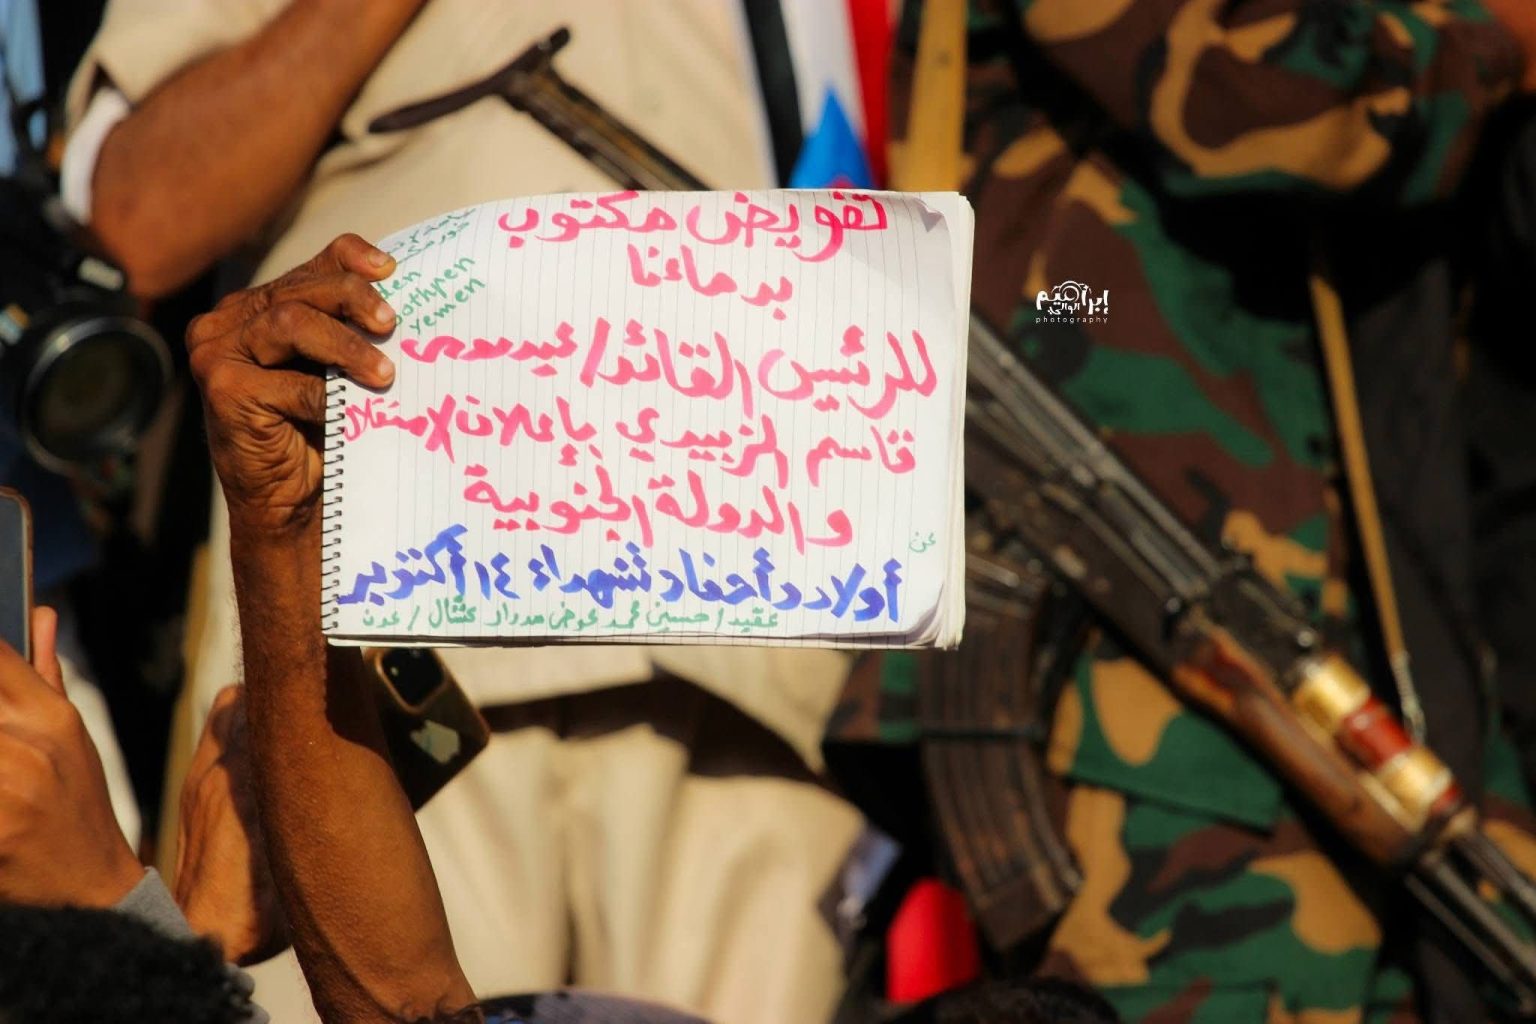 تفويض مكتوب
بدمائنا
للرئيس القائد/عيدروس
قاسم الزبيدي بإعلان الإستقلال
والدولة الجنوبية
عن
أولاد وأحفاد شهداء ١٤ أكتوبر
عقيد/حسين محمد عوض مدرار عشال/عدن
yemen
إبراهيم
photography